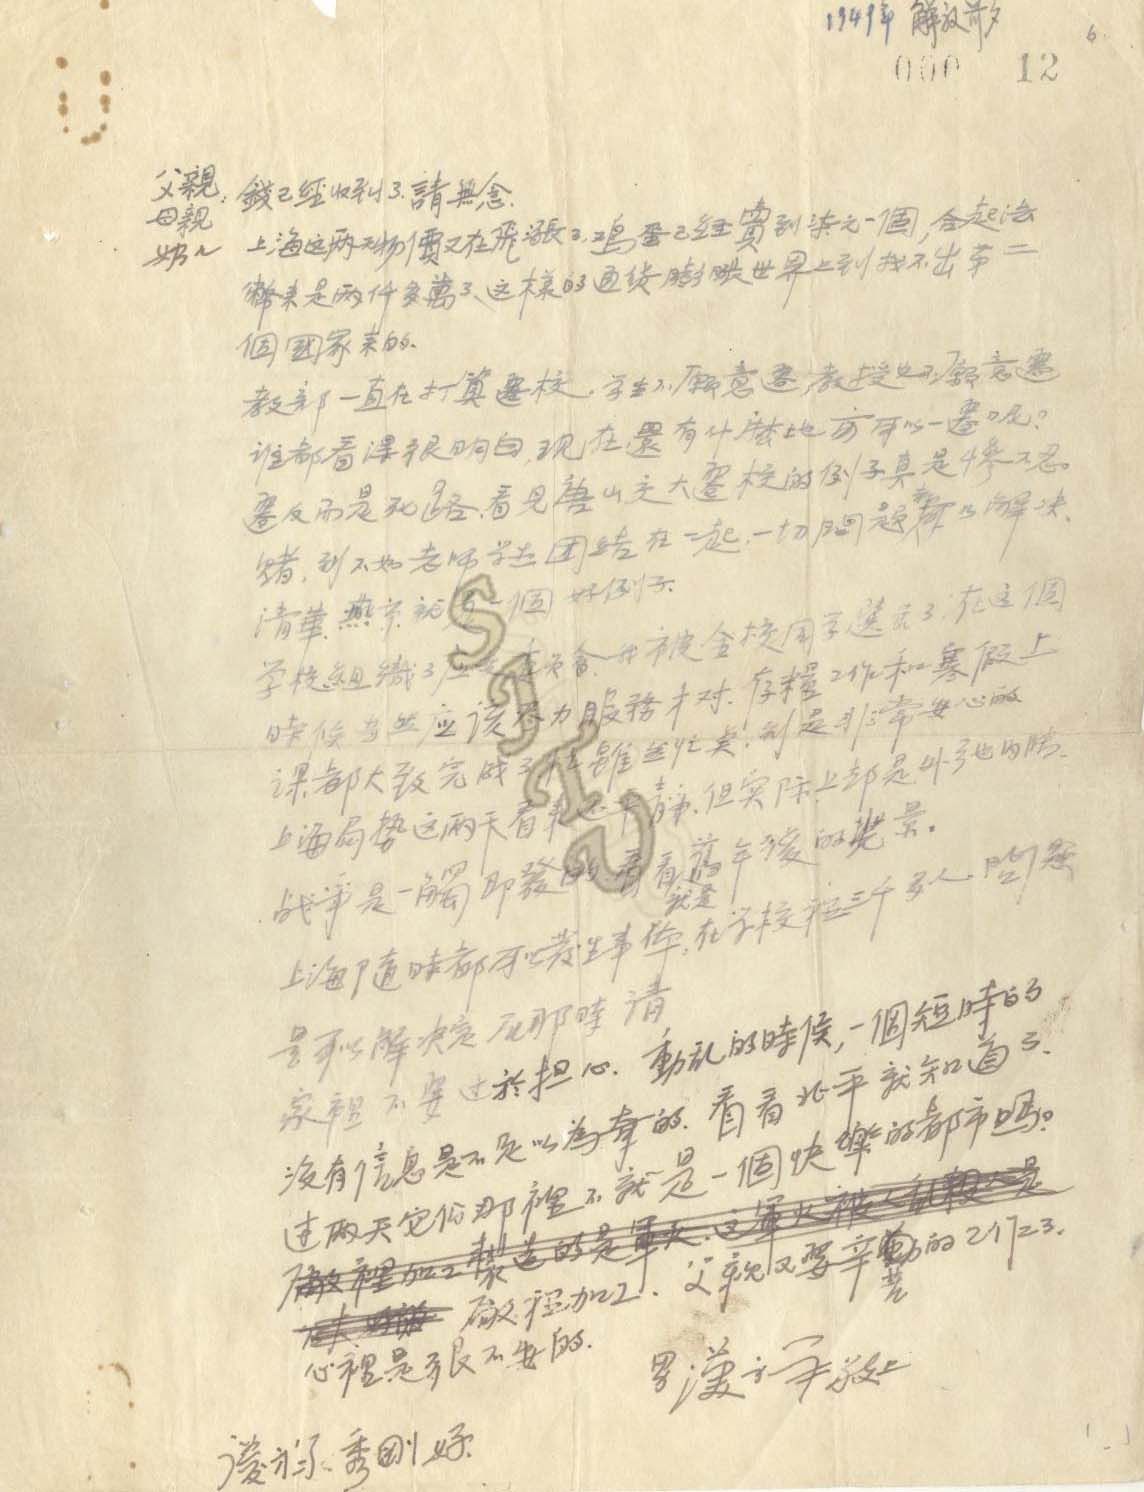 1949年 解放前夕
6
000 12
父親: 錢已經收到了.請無念.
母親
奶々 上海这两天物價又在飛漲了,鸡蛋已經賣到柒元一個,合起法
幣来是两仟多萬了、这樣的通货膨脹世界上到找不出第二
個國家来的.
教部一直在打算遷校.学生不願意遷,教授也不願意遷
谁都看得很明白,现在還有什麽地方可以一遷呢?
遷反而是死路.看見唐山交大遷校的例子真是惨不忍
睹,到不如老师学生团结在一起,一切問題都可以解决、
清華、燕京就是一個好例子.
学校組織了应变委員會、我被全校同学選去了,在这個
時候当然应该尽力服務才对.存糧工作和寒假上
课都大致完成了,忙雖然忙点,到是非常安心的
上海局势这两天看来还平静、但实际上却是外弛内張.
战争是一觸即發的 看看前年後的光景.
上海隨時都可以發生事件, 就是在学校裡三千多人.問題
是可以解决
家裡不要过於担心. 動乱的時候,一個短時的
没有信息是不足以為奇的. 看看北平就知道了.
过两天 那裡不就是一個快樂的都市嗎?
廠裡加工製造的是軍火.这軍火被
廠裡加工. 父親又要辛勤的 了.
苦
心裡是很不安的.
罗漢 敬上
秀剛好.
SJTU